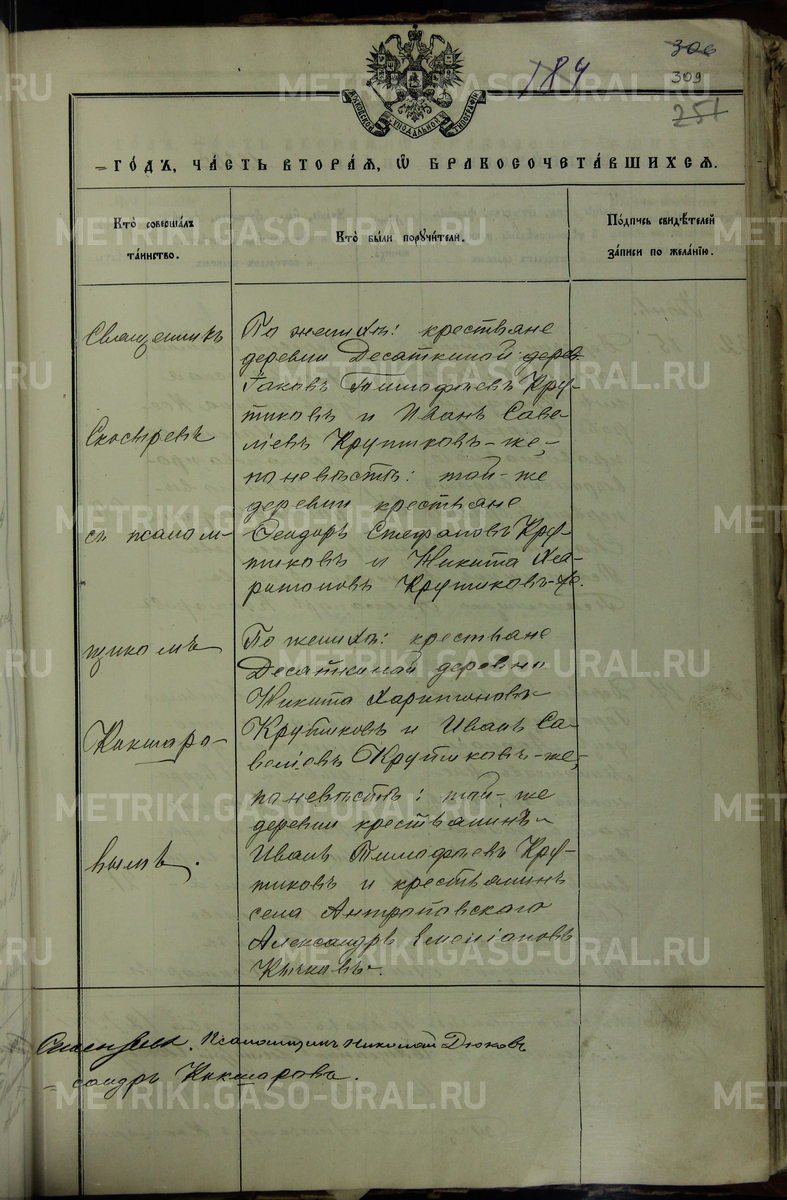 184
306
309
251
МОСКОВСКОЙ СѴНОДАЛЬНОЙ ТИПОГРАФІИ
– ГО́ДЪ, ЧА́СТЬ ВТОРА́Я, Ѽ БРАКОСОЧЕТА́ВШИХСЯ.
Кто̀ соверша́лъ
та́инство.
Кто̀ бы́ли порꙋчи́тели.
По́дпись свидѣ́телей
за́писи по жела́нїю.
Священникъ
Скосыревъ
съ псалом-
щикомъ
Кокшаро-
вымъ.
По женихѣ: крестьяне
деревни Десяткиной
Іаковъ Тимофѣевъ Кру-
тиковъ и Иванъ Саве-
ліевъ Крутиковъ-же,
по невѣстѣ: той-же
деревни крестьяне
Ѳеодоръ Стефановъ Кру-
тиковъ и Никита Ха-
ритоновъ Крутиковъ-же.
По женихѣ: крестьяне
Десяткиной деревни
Никита Харитоновъ
Крутиковъ и Иванъ Са-
веліевъ Крутиковъ-же,
по невѣстѣ: той-же
деревни крестьянинъ
Иванъ Тимофѣевъ Кру-
тиковъ и крестьянинъ
села Антроповскаго
Александръ Емеліановъ
Кычковъ.
Псаломщикъ Николай Дюковъ
сандръ Кокшаровъ.
METRIKI.GASO-URAL.RU